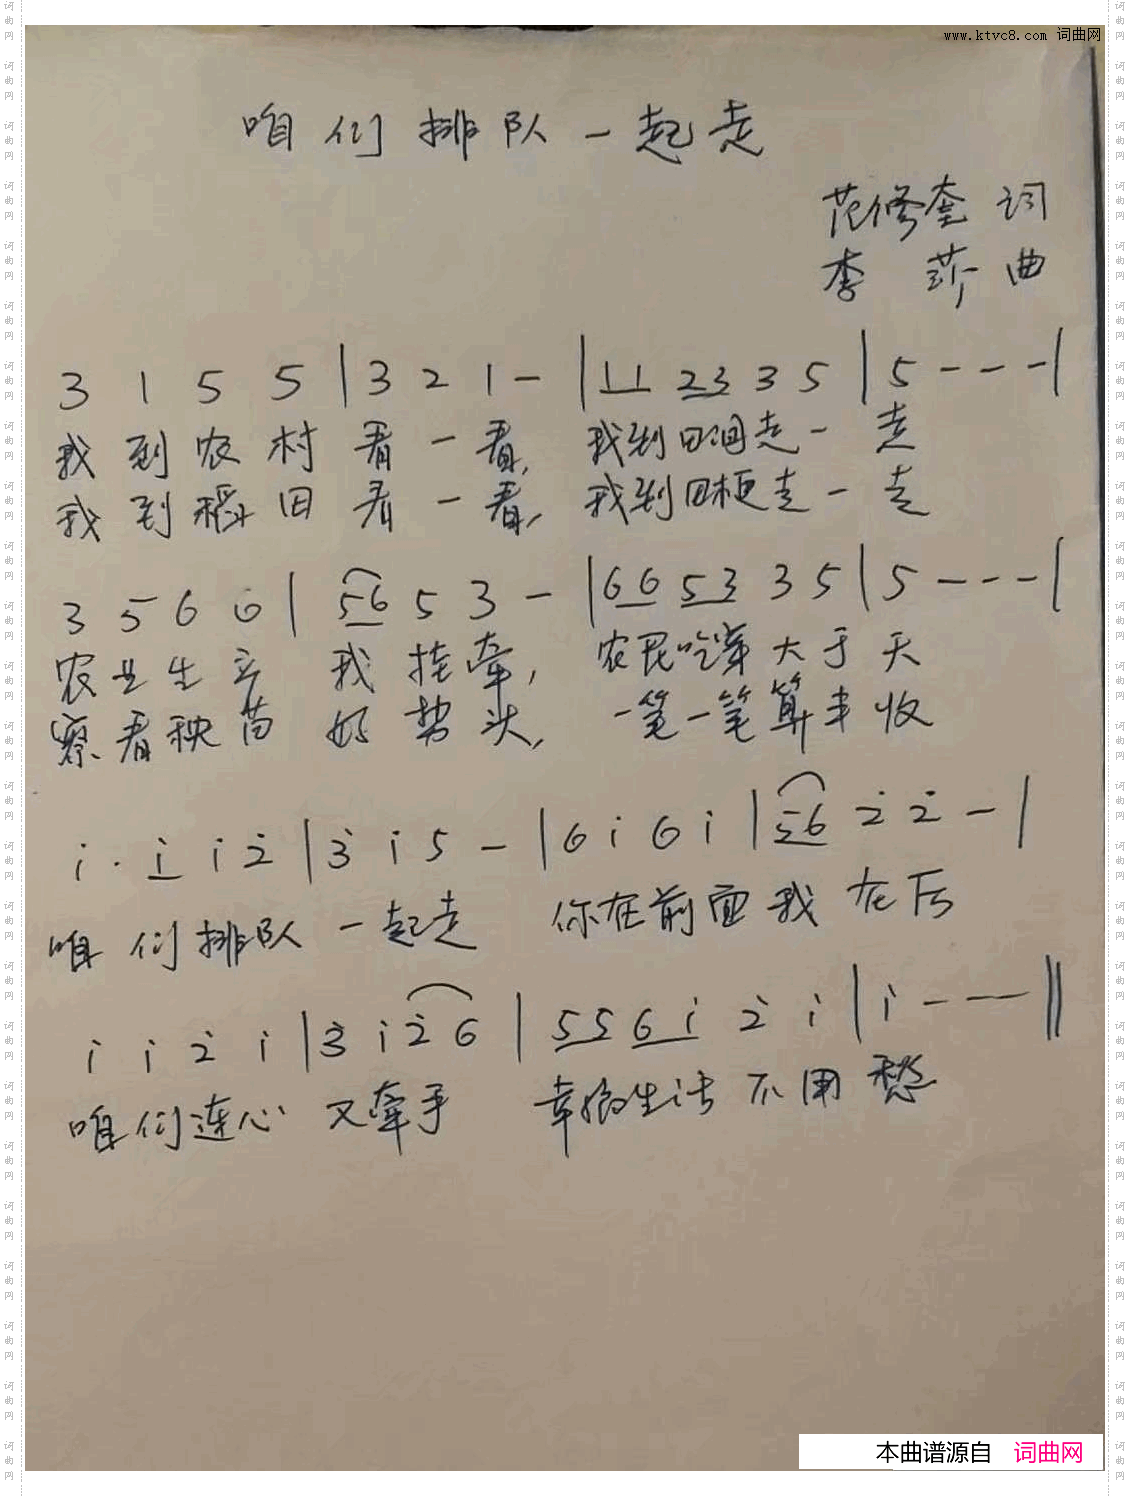 www.ktvc8.com 词曲网
咱们排队一起走
范修奎 词
李 莎 曲
3 1 5 5 | 3 2 1 - | 1 1 2 3 3 5 | 5 - - - |
我到农村看一看, 我到田间走一走
我到稻田看一看, 我到田梗走一走
3 5 6 6 | 5 6 5 3 - | 6 6 5 3 3 5 | 5 - - - |
农业生产 我挂牵, 农民吃穿大于天
察看秧苗 好势头, 一笔一笔算丰收
i · i i 2̇ | 3̇ i 5 - | 6 i 6 i | 5 6 2̇ 2̇ - |
咱们排队一起走 你在前面我在后
i i 2̇ i | 3̇ i 2̇ 6 | 5 5 6 i 2̇ i | i - - - ||
咱们连心又牵手 幸福生活不用愁
本曲谱源自 词曲网